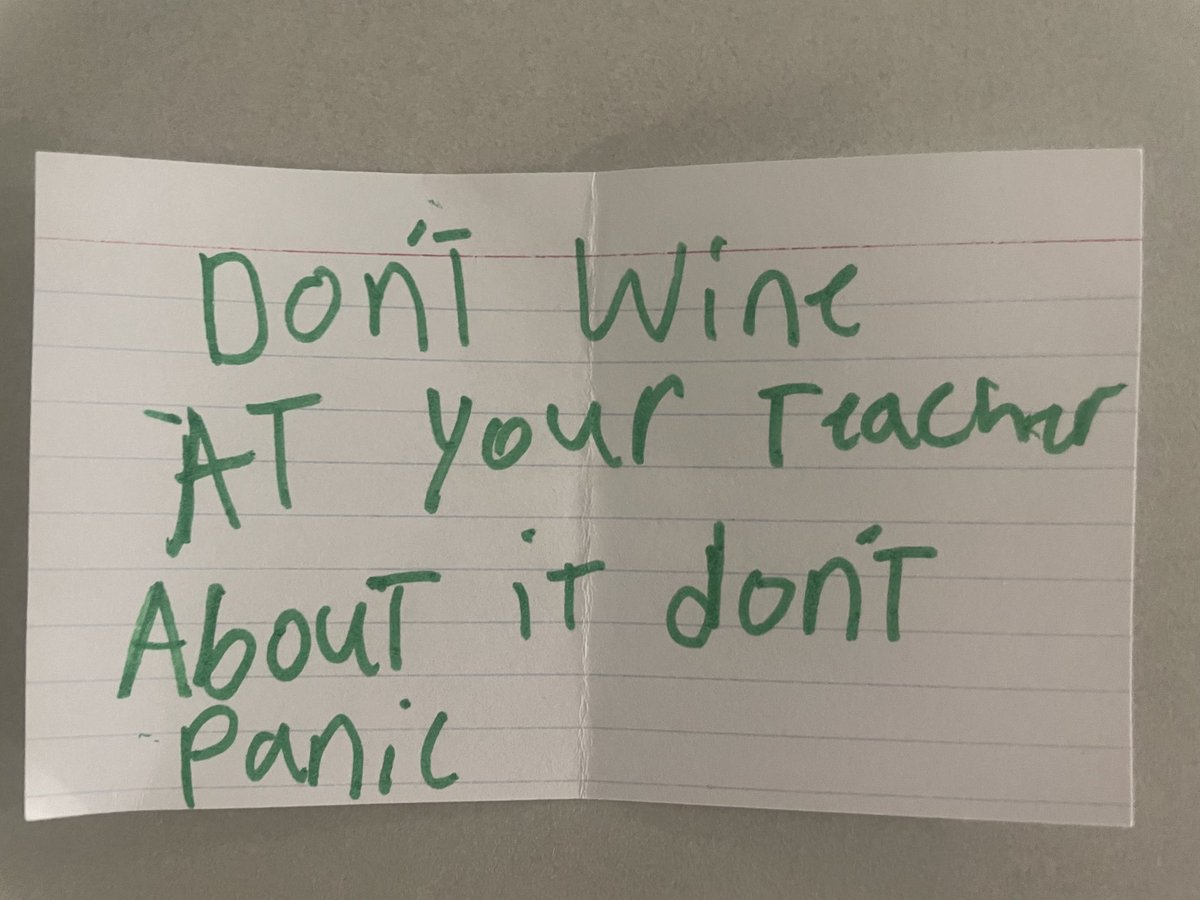 Don't Wine
AT your Teacher
About it don't
panic